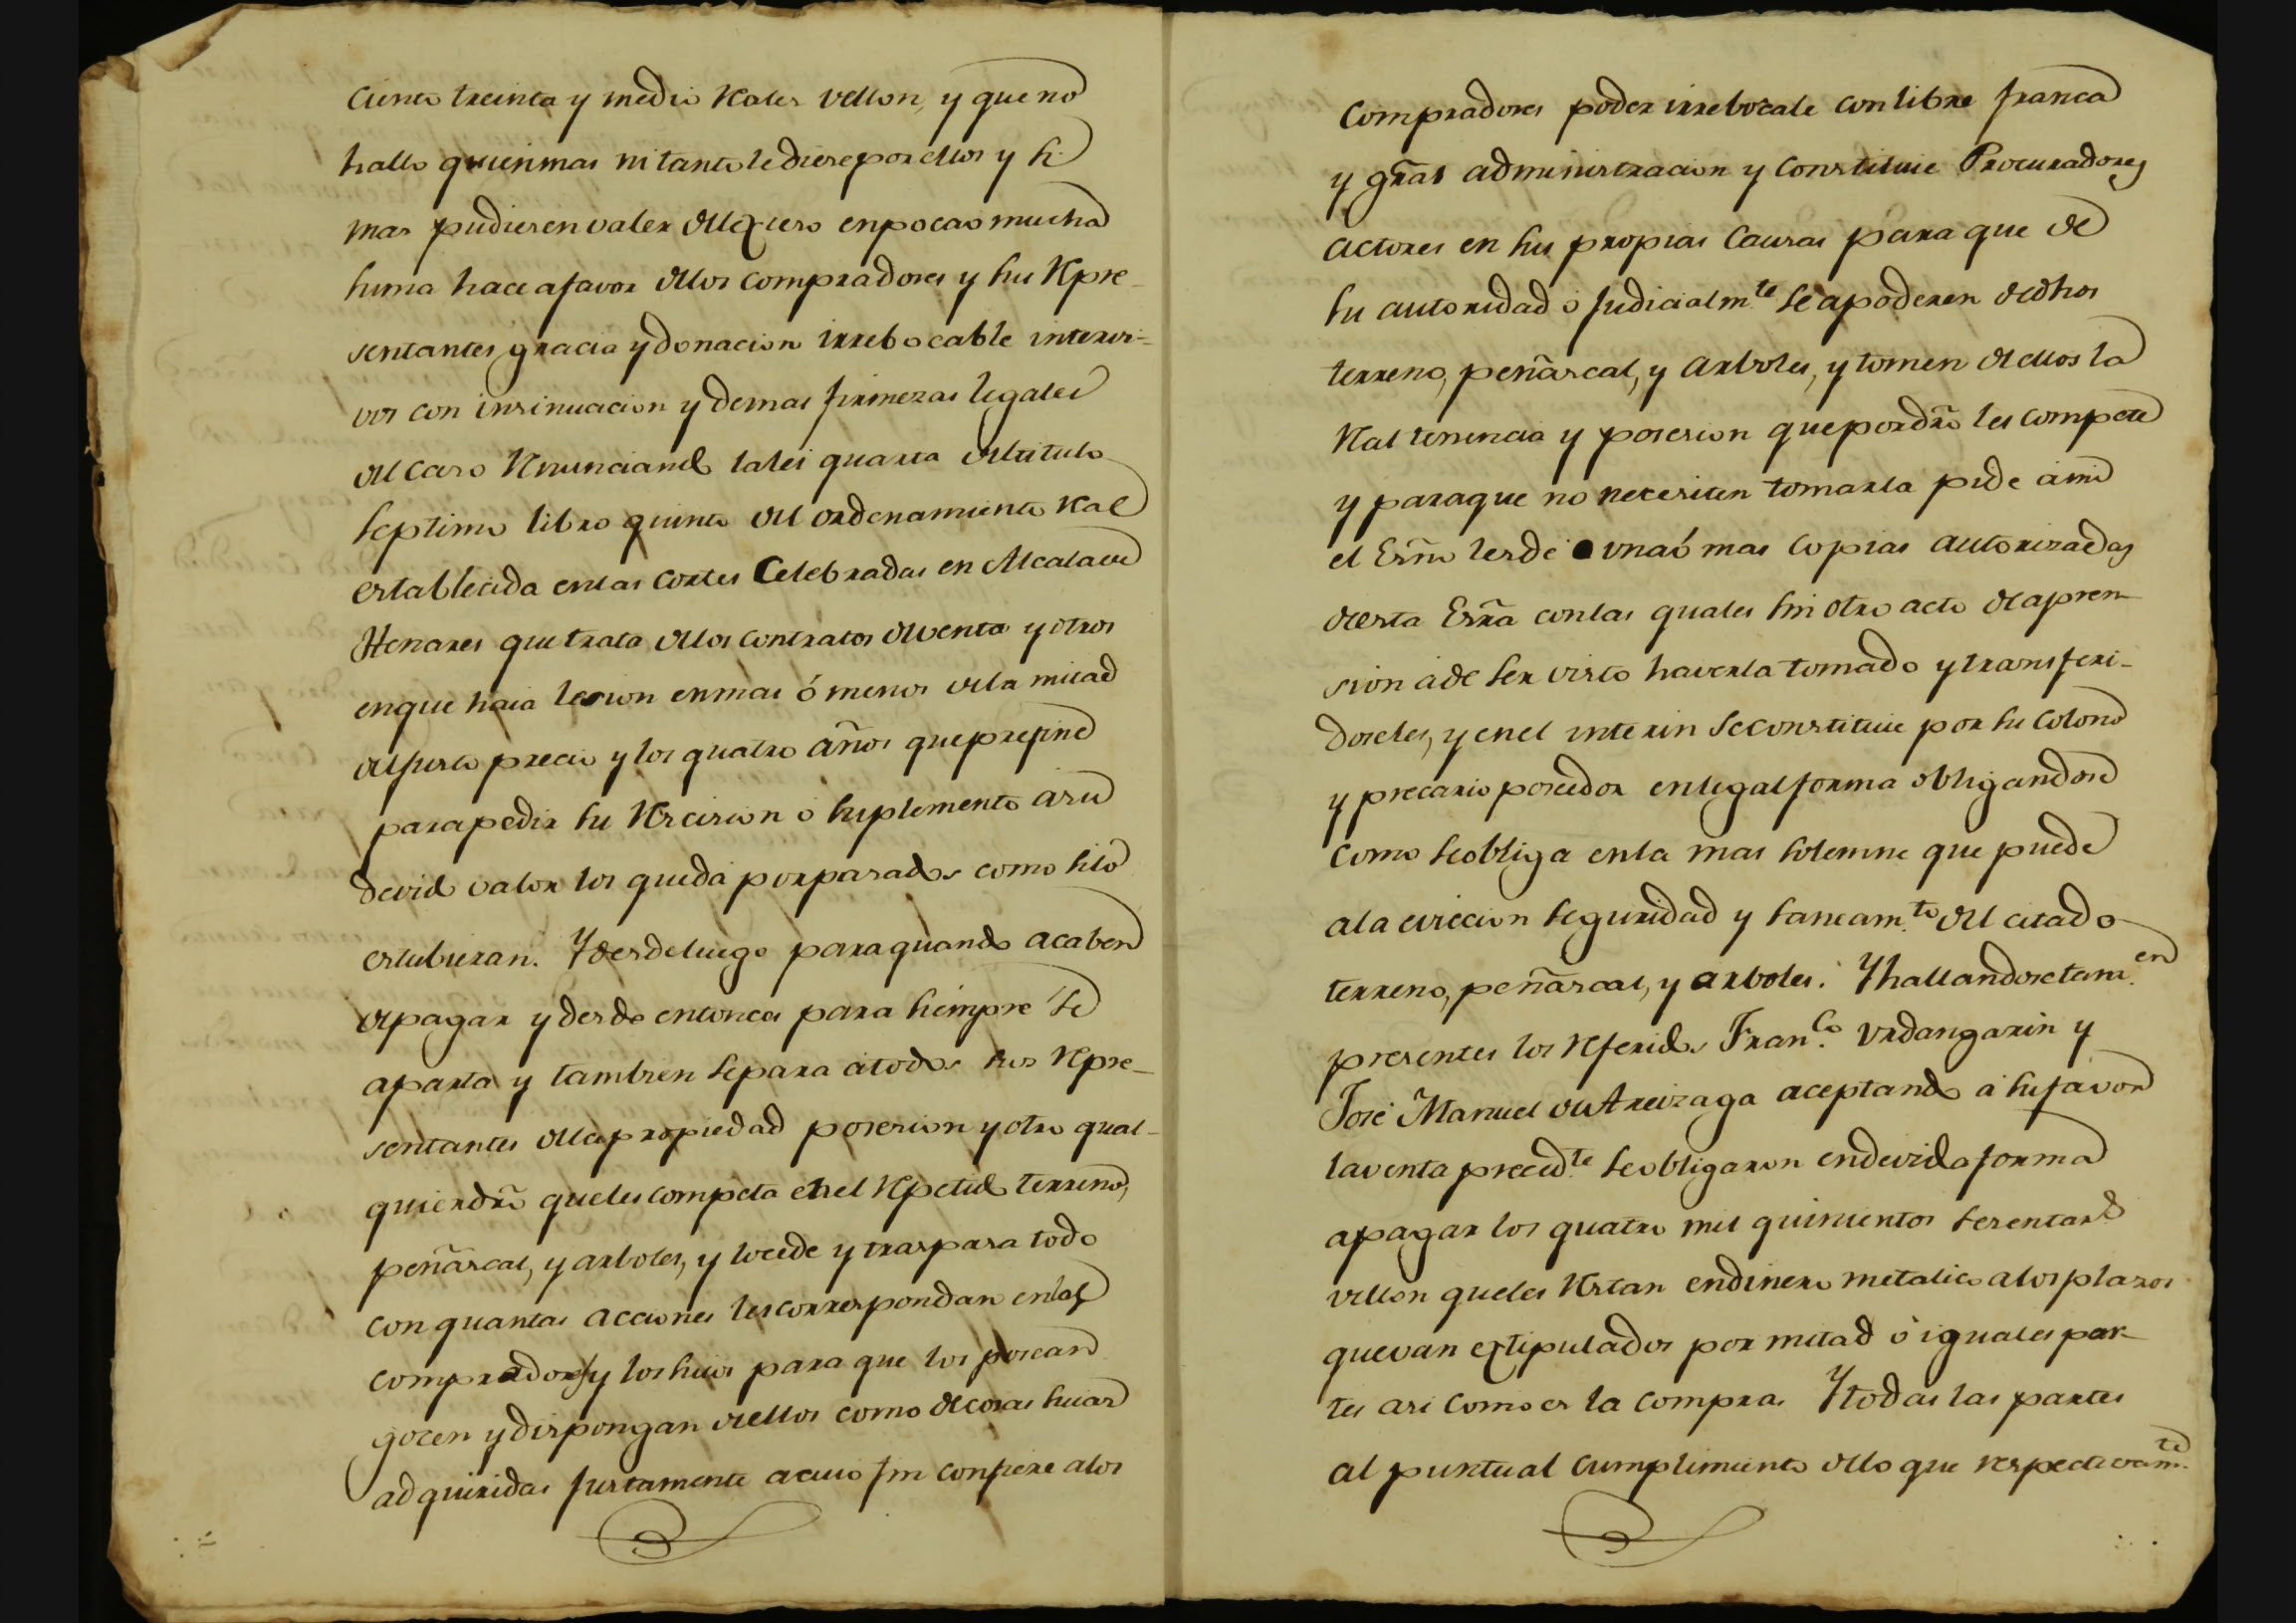 Ciento treinta y medio Rales vellon, y que no
hallo quien mas ni tanto le diese por ellos y si
mas pudiesen valer del exceso en poca o mucha
suma hace a favor de los compradores y sus Repre-
sentantes gracia y donacion irrebocable intervi-
vos con insinuacion y demas firmezas legales
del caso Renunciando la lei quarta del titulo
septimo libro quinto del ordenamiento Real
establecida en las Cortes Celebradas en Alcala de
Henares que trata de los contratos de venta y otros
en que haia lesion en mas ó menos de la mitad
del justo precio y los quatro años que prefine
para pedir su Rescision ó suplemento a su
devido valor los que da por pasados como si lo
estubieran. Y desde luego para quando acaben
de pagar y desde entonces para siempre se
aparta y tambien separa á todos sus Repre-
sentantes de la propiedad posesion y otro qual-
quier dr̃o que les competa en el Repetido terreno,
peñascal, y arboles, y lo cede y traspasa todo
con quantas acciones les correspondan en los
compradores y los suios para que los posean
gocen y dispongan de ellos como de cosas suias
adquiridas justamente a cuio fin confiere a los
Compradores poder irrebocale con libre franca
y gr̃al administracion y Constituie Procuradores
actores en sus propias Causas para que de
su autoridad ó judicialm.te se apoderen de dhos
terreno, peñascal, y Arboles, y tomen de ellos la
Real tenencia y posesion que por dr̃o les compete
y para que no necesiten tomarla pide á mi
el Esño les de una ó mas copias autorizadas
de esta Esr̃a con las quales sin otro acto de apren-
sion á de ser visto haverla tomado y transferi-
doseles, y en el interin se constituie por su Colono
y precario poseedor en legal forma obligandose
como se obliga en la mas solemne que puede
a la eviccion seguridad y saneam.to del citado
terreno, peñascal, y arboles. Y hallandose tam.en
presentes los Referidos Fran.co Urdangarin y
José Manuel de Areizaga aceptando á su favor
la venta preced.te se obligaron en devida forma
a pagar los quatro mil quinientos sesenta r.s
vellon que les Restan en dinero metalico a los plazos
que van extipulados por mitad ó iguales par-
tes asi como es la compra. Y todas las partes
al puntual cumplimiento de lo que respectivam.te